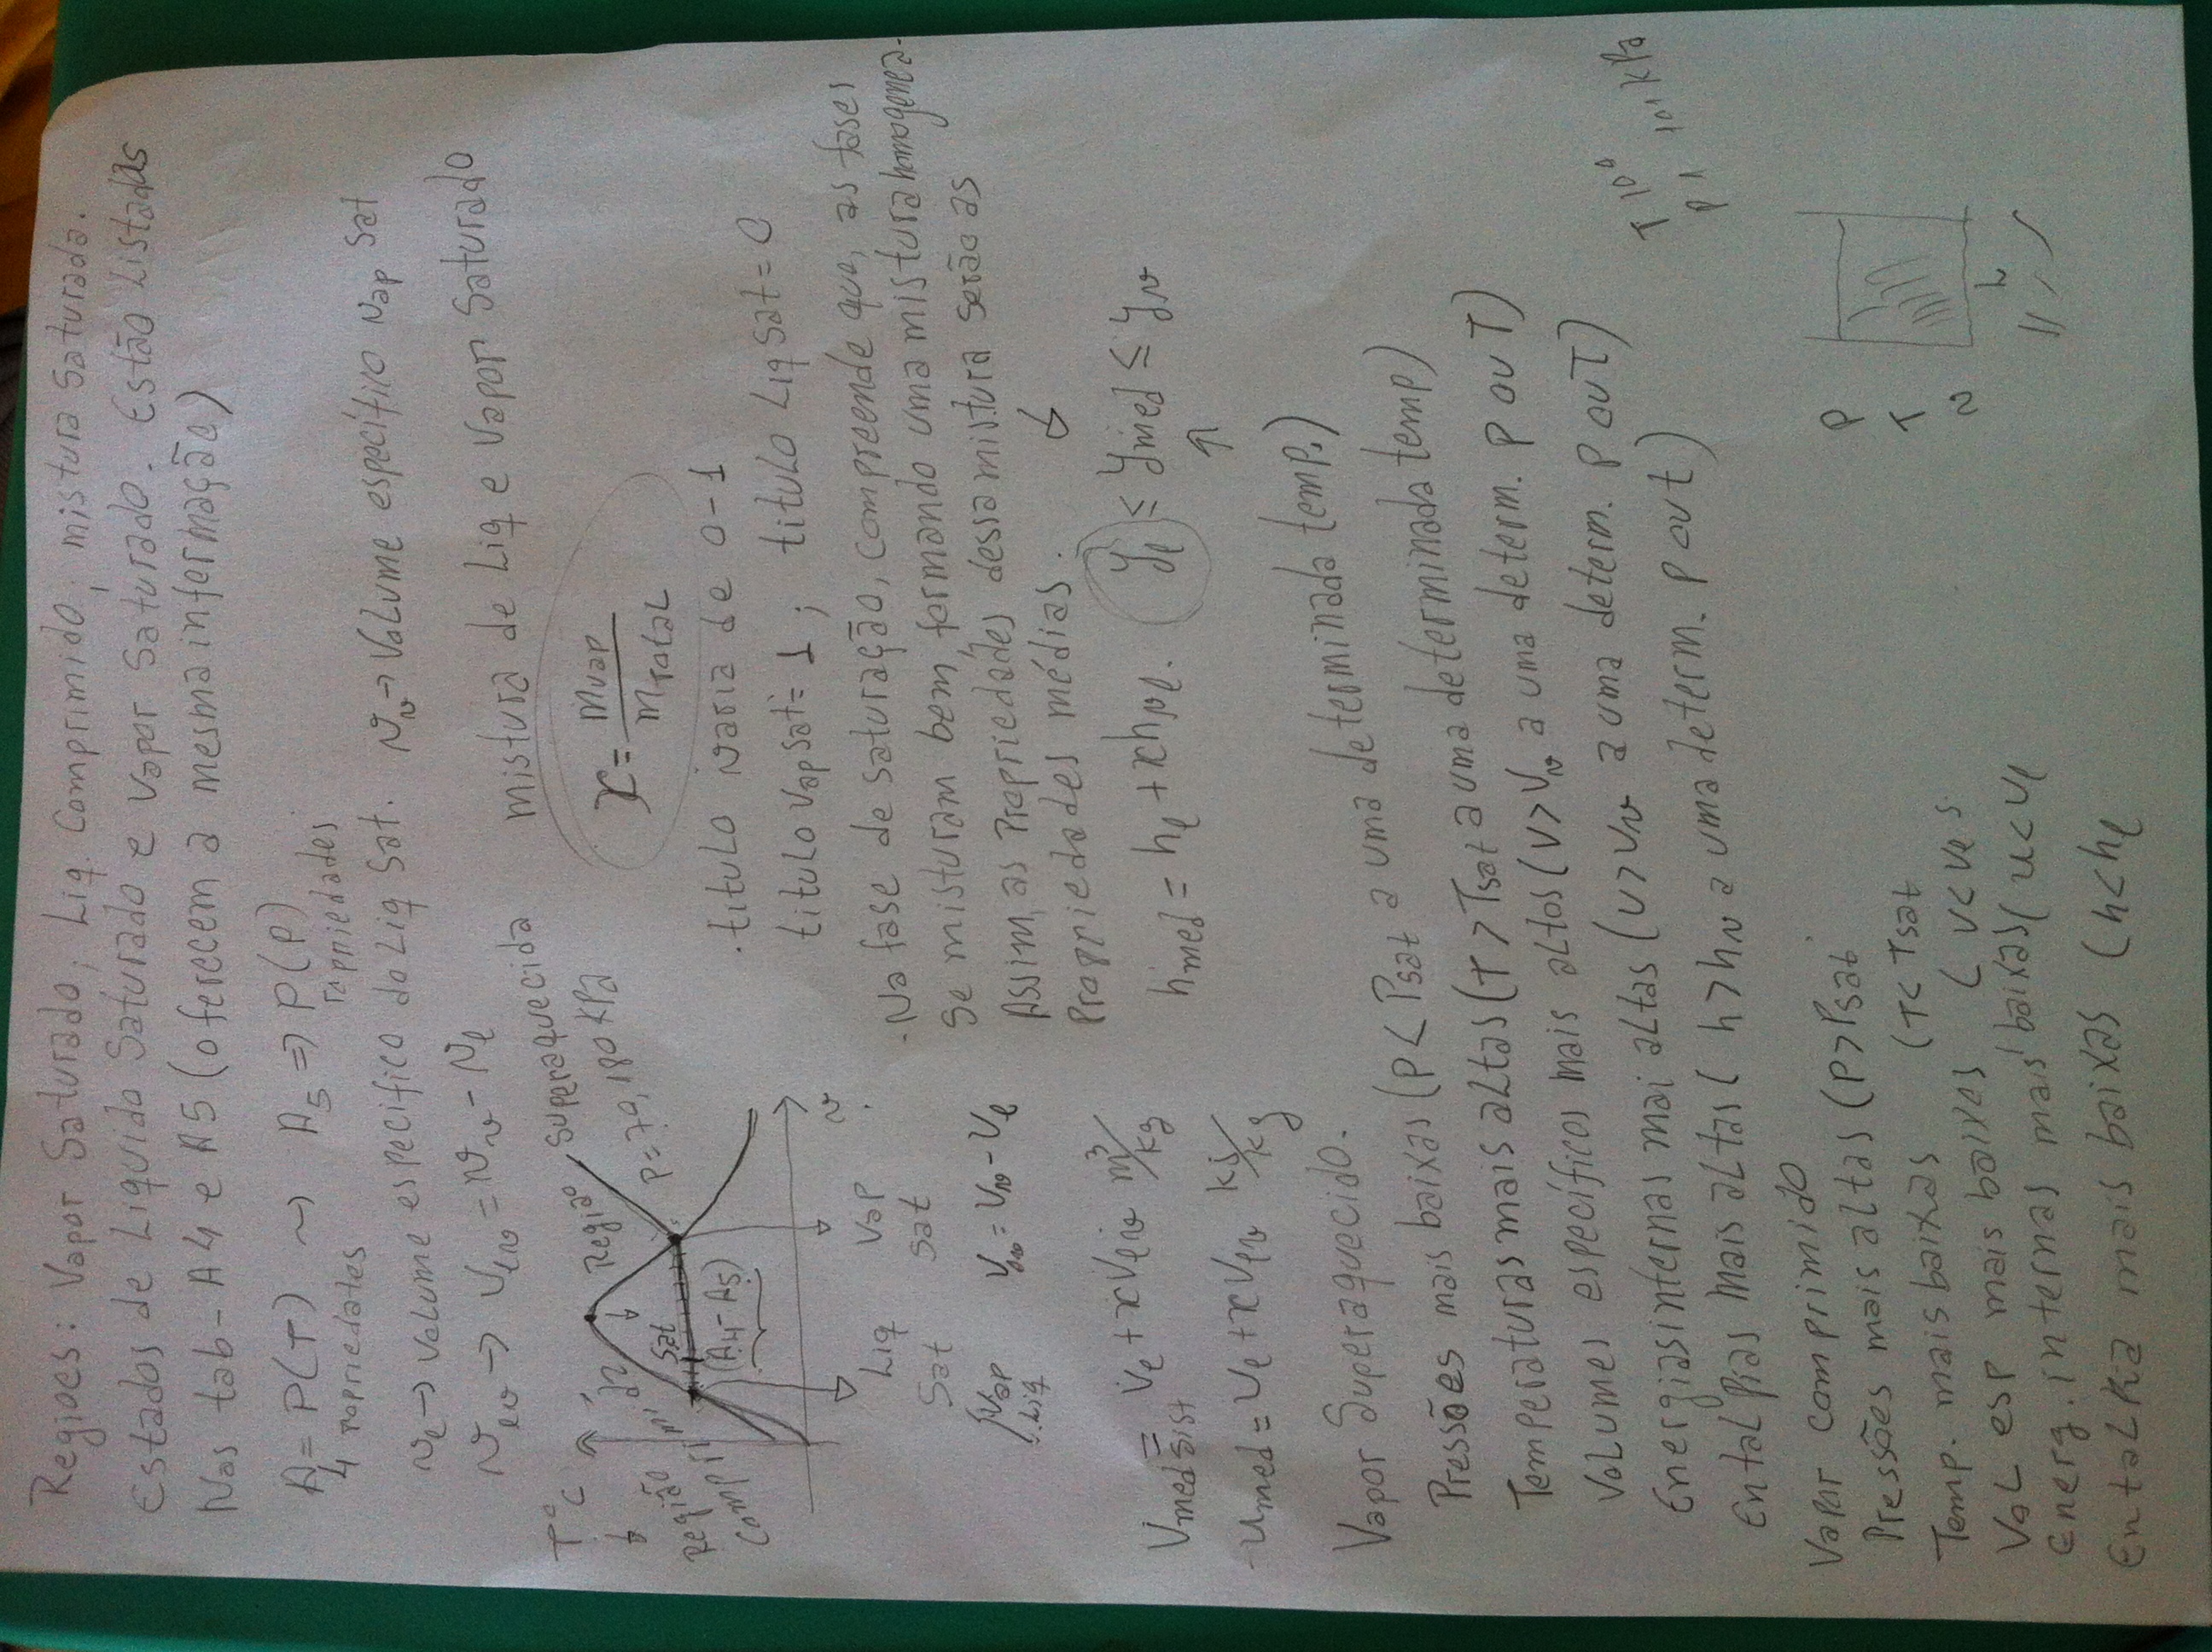 Regiões: Vapor Saturado; Liq. Comprimido; mistura saturada.
Estados de Liquido Saturado e Vapor Saturado. Estão Listadas
Nas tab - A4 e A5 (oferecem a mesma informação)
A4 = P(T) ~> A5 => P(P)
ropriedates ropriedades
vl -> Volume especifico do Liq Sat. vv -> Volume específico vap sat
vlv -> vlv = vv - vl
mistura de Liq e Vapor Saturado
x = mvap / mTotaL
T°C
Região superaquecida
P = 79,180 kPa
Região
compri
Sat
(A4-A5)
v
Liq Sat
Vap Sat
. titulo varia de 0-1
titulo vap sat = 1 ; titulo Liq sat = 0
. Na fase de saturação, compreende que, as fases
se misturam bem, formando uma mistura homogenea.
Assim, as Propriedades dessa mistura serão as
Propriedades médias.
hmed = hl + x hvl. yl ≤ ymed ≤ yv
Vmed = Vl + x Vlv m³/kg
sist
umed = ul + x ulv kJ/kg
Vapor Superaquecido.
Pressões mais baixas (P < Psat a uma determinada temp.)
Temperaturas mais altas (T > Tsat a uma determinada temp)
Volumes específicos mais altos (V > Vv a uma determ. P ou T)
Energias internas mai altas (u > uv a uma determ. P ou T)
EntaL pias mais altas (h > hv a uma determ. P out)
T 10°
P 1 101 kPa
Vapor comprimido
Pressões mais altas (P > Psat
Temp. mais baixas (T < Tsat
VoL esp mais baixos (v < vl
energ. internas mais baixas (u < ul
EntaLpia mais baixas (h < hl
P
T
v